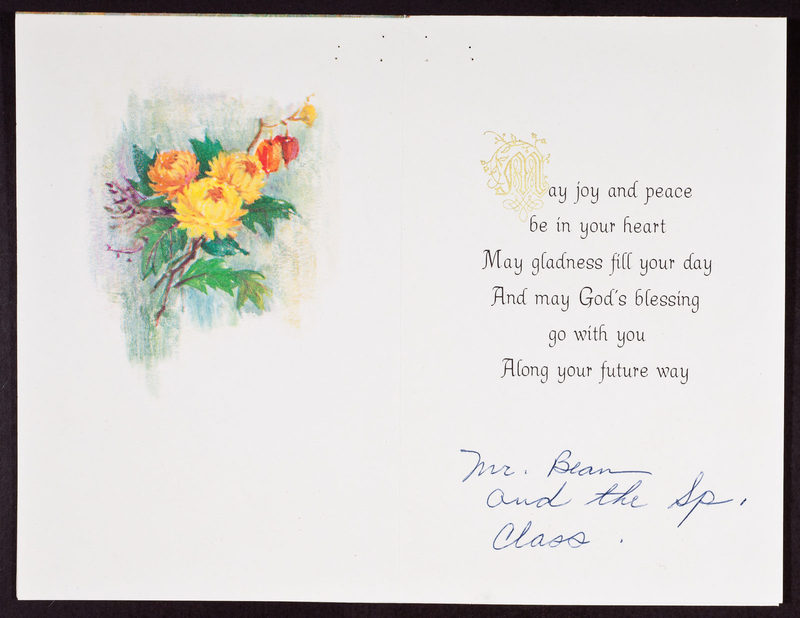 May joy and peace
be in your heart
May gladness fill your day
And may God's blessing
go with you
Along your future way
Mr. Bean
and the Sp.
Class.